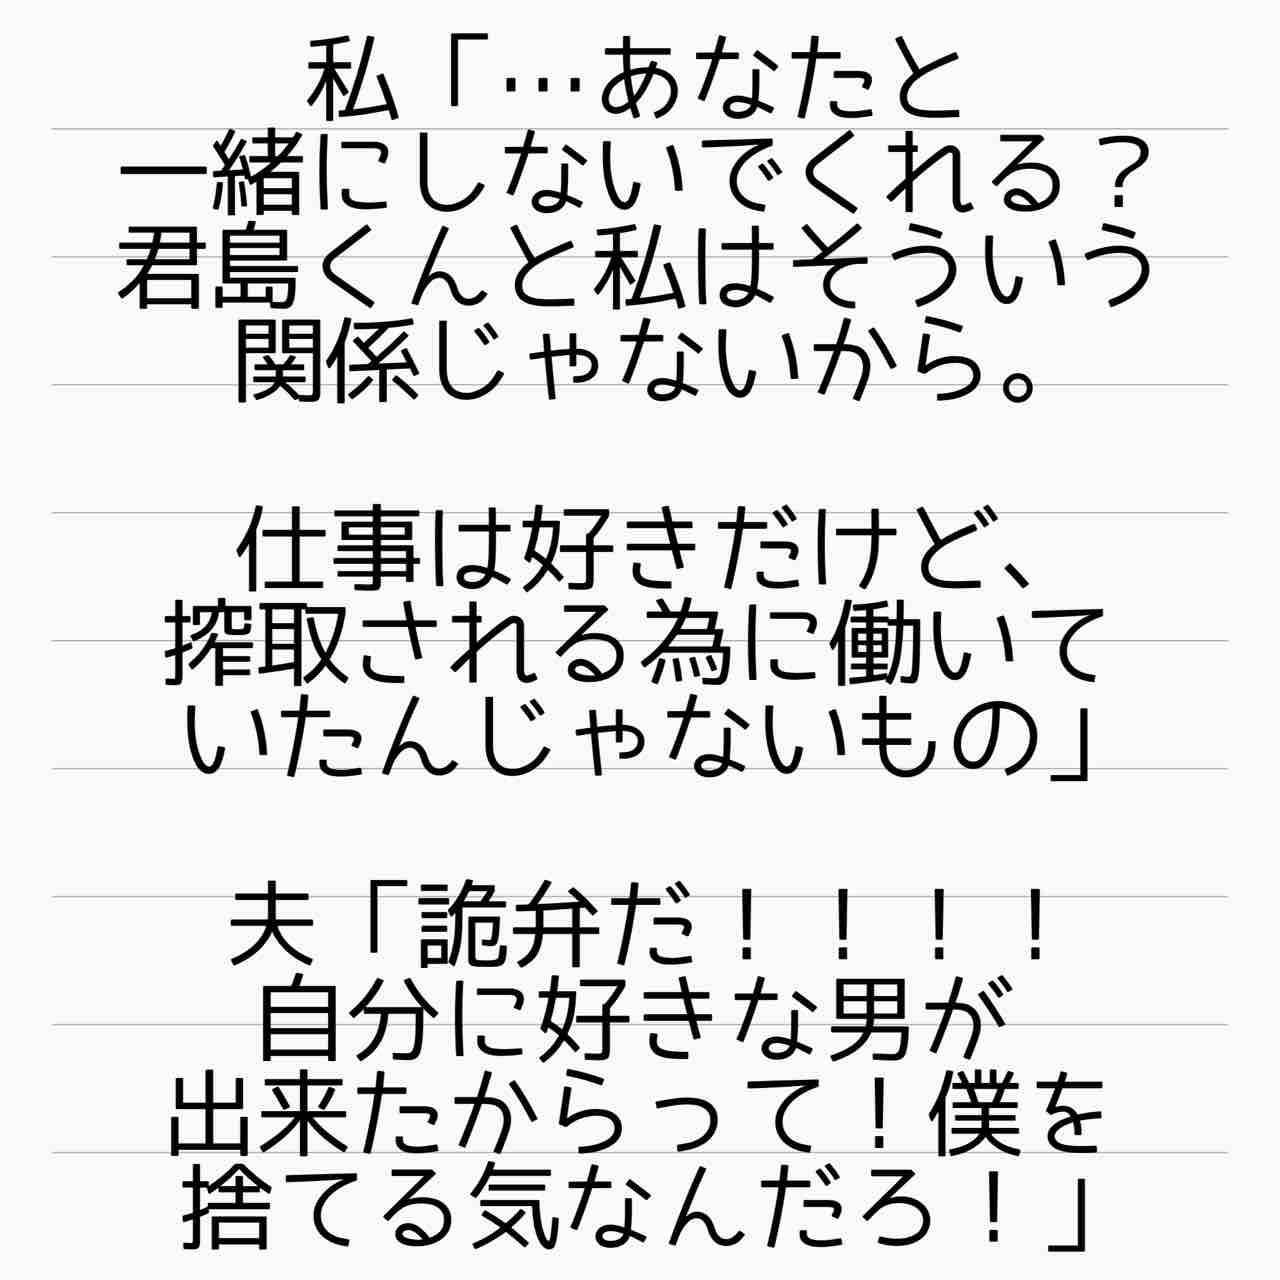 私「…あなたと
一緒にしないでくれる？
君島くんと私はそういう
関係じゃないから。
仕事は好きだけど、
搾取される為に働いて
いたんじゃないもの」
夫「詭弁だ！！！！
自分に好きな男が
出来たからって！僕を
捨てる気なんだろ！」